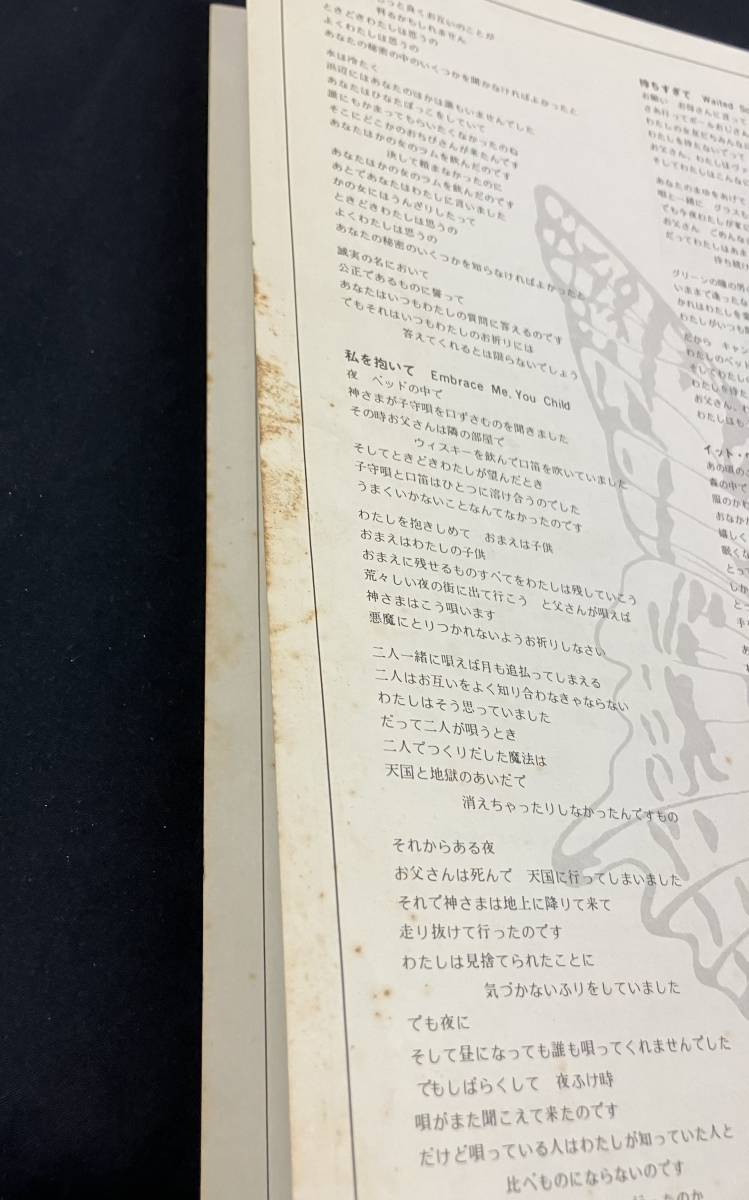 もっと良くお互いのことが
判るかもしれません
ときどきわたしは思うの
よくわたしは思うの
あなたの秘密の中のいくつかを聞かなければよかったと
水は冷たく
浜辺にはあなたのほかは誰もいませんでした
あなたはひなたぼっこをしていて
誰にもかまってもらいたくなかったのね
そこにどこかのおちびさんが来たんです
あなたはかの女のラムを飲んだのです
決して頼まなかったのに
あなたはかの女のラムを飲んだのです
あとであなたはわたしに言いました
かの女にはうんざりしたって
ときどきわたしは思うの
よくわたしは思うの
あなたの秘密のいくつかを知らなければよかったと
誠実の名において
公正であるものに誓って
あなたはいつもわたしの質問に答えるのです
でもそれはいつもわたしのお祈りには
答えてくれるとは限らないでしょう
私を抱いて Embrace Me, You Child
夜 ベッドの中で
神さまが子守唄を口ずさむのを聞きました
その時お父さんは隣の部屋で
ウィスキーを飲んで口笛を吹いていました
そしてときどきわたしが望んだとき
子守唄と口笛はひとつに溶け合うのでした
うまくいかないことなんてなかったのです
わたしを抱きしめて おまえは子供
おまえはわたしの子供
おまえに残せるものすべてをわたしは残していこう
荒々しい夜の街に出て行こう と父さんが唄えば
神さまはこう唄います
悪魔にとりつかれないようお祈りしなさい
二人一緒に唄えば月も追払ってしまえる
二人はお互いをよく知り合わなきゃならない
わたしはそう思っていました
だって二人が唄うとき
二人でつくりだした魔法は
天国と地獄のあいだで
消えちゃったりしなかったんですもの
それからある夜
お父さんは死んで 天国に行ってしまいました
それで神さまは地上に降りて来て
走り抜けて行ったのです
わたしは見捨てられたことに
気づかないふりをしていました
でも夜に
そして昼になっても誰も唄ってくれませんでした
でもしばらくして 夜ふけ時
唄がまた聞こえて来たのです
だけど唄っている人はわたしが知っていた人と
比べものにならないのです
待ちすぎて Waited
お願い お母さんに言って
さあ行ってポールおじさん
わたしの女友だちみんなに
わたしを待たないでって
お父さん、わたしはヴァ
そしてわたしはこんなに
あなたのまゆをあげて
唄と一緒に グラスを
でも今夜わたしが家に
お父さん ごめんな
だってわたしはあま
待ち続け
グリーンの瞳の男の
いままで逢ったな
かれはわたしを愛
わたしがいつも
だから キャン
わたしのベッド
そしてわたしの
わたしを待た
お父さん、わ
わたしはも
イット・
あの頃の
森の中で
風のかわ
おなかが
嬉しく
眠くな
とって
しか
とっ
手を
あ